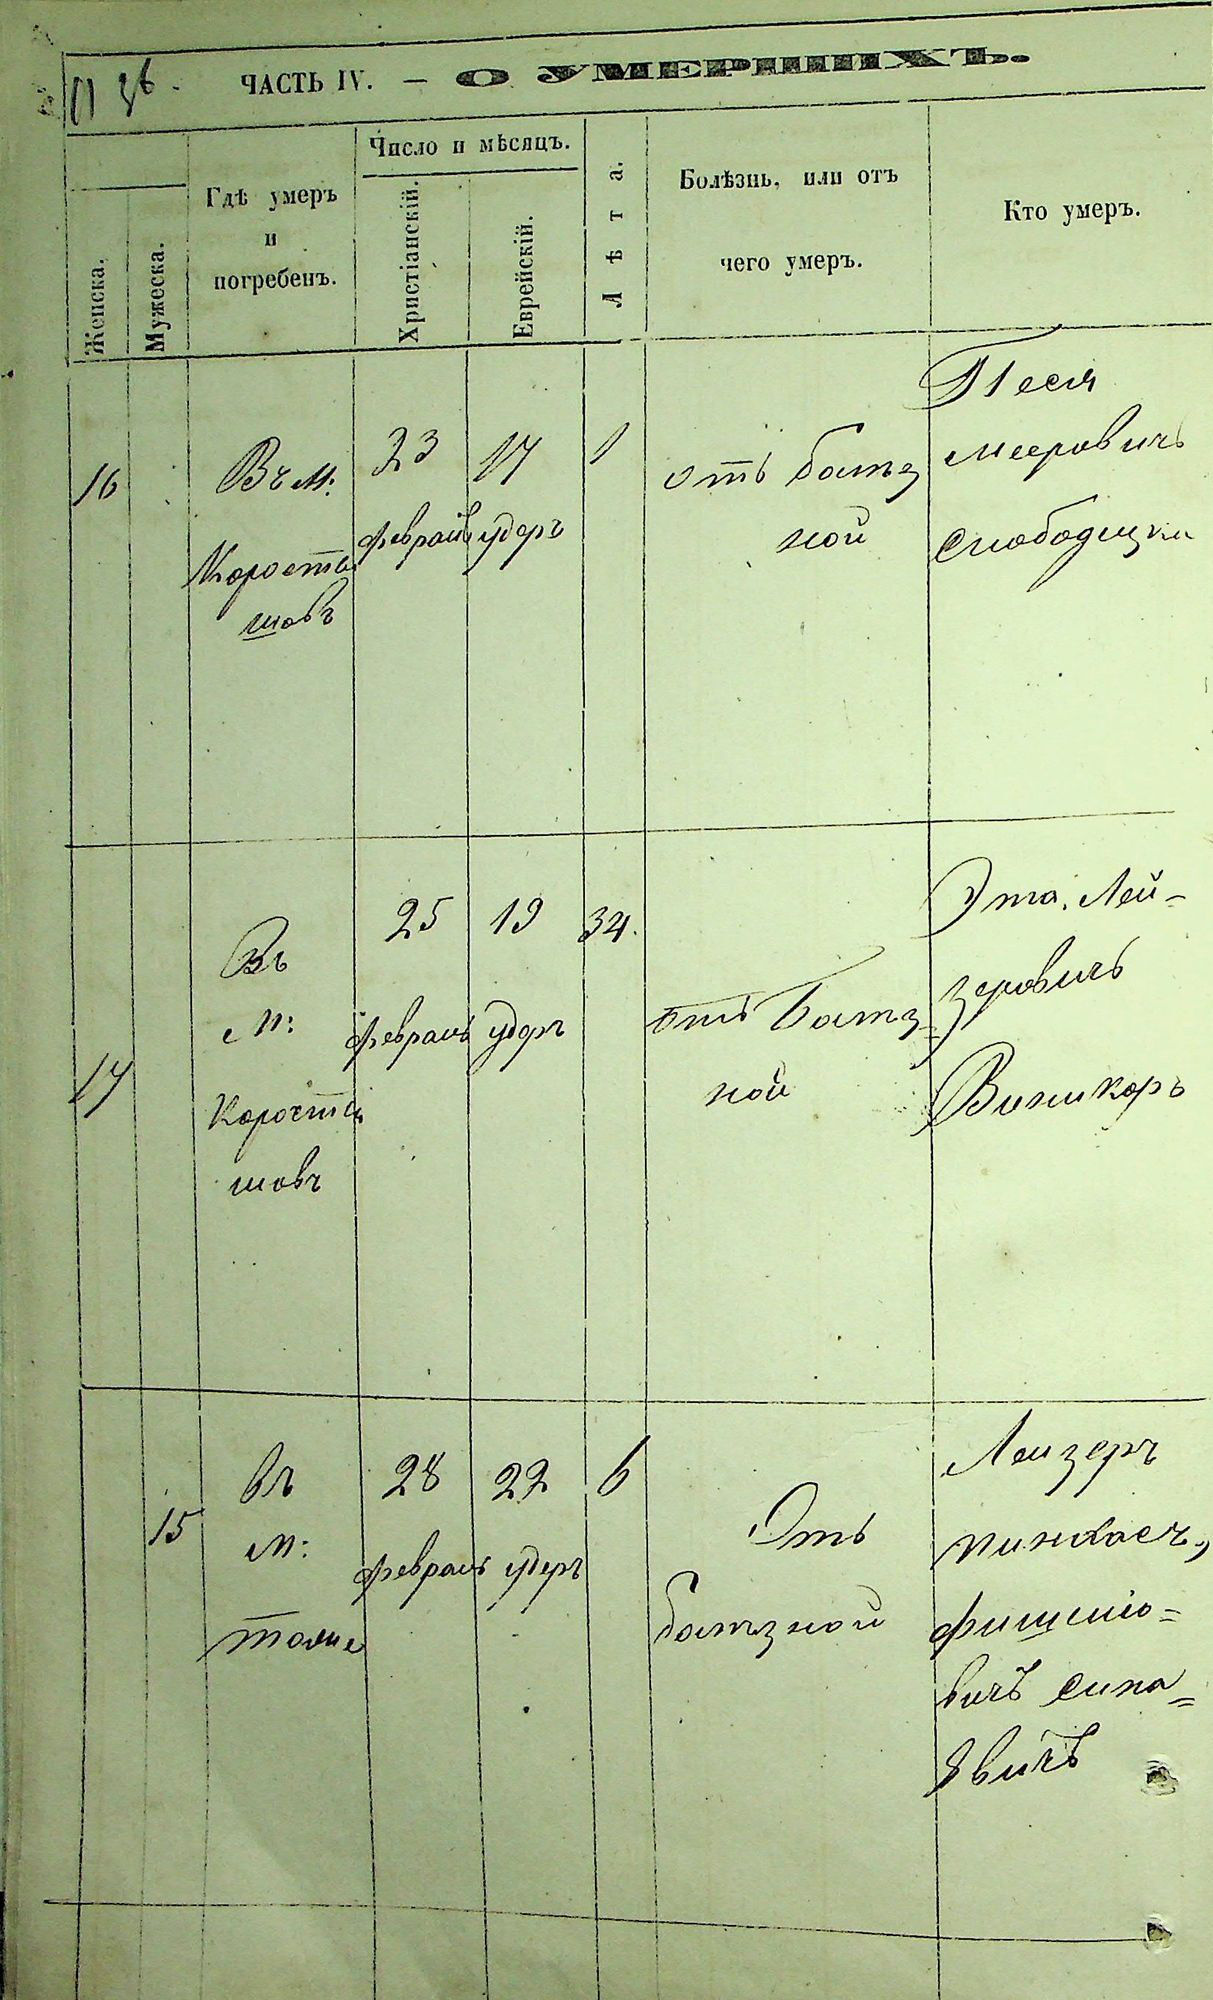 ЧАСТЬ IV. — О УМЕРШИХЪ.
Женска.
Мужеска.
Гдѣ умеръ
и
погребенъ.
Число и мѣсяцъ.
Христіанскій.
Еврейскій.
Лѣта.
Болѣзнь, или отъ
чего умеръ.
Кто умеръ.
16
Въ м:
Корости
шовъ
23
февраль
17
удеръ
1
отъ болѣз
ной
Песя
мееровичъ
Слободецки
17
Въ
м:
Корости
шовъ
25
февраль
19
удеръ
34.
отъ болѣз
ной
Эта Лей-
зеровичъ
Виникоръ
15
въ
м:
28
февраль
22
удеръ
6
Отъ
болѣзной
Лейзеръ
пинхасъ,
фишеліо=
вичъ